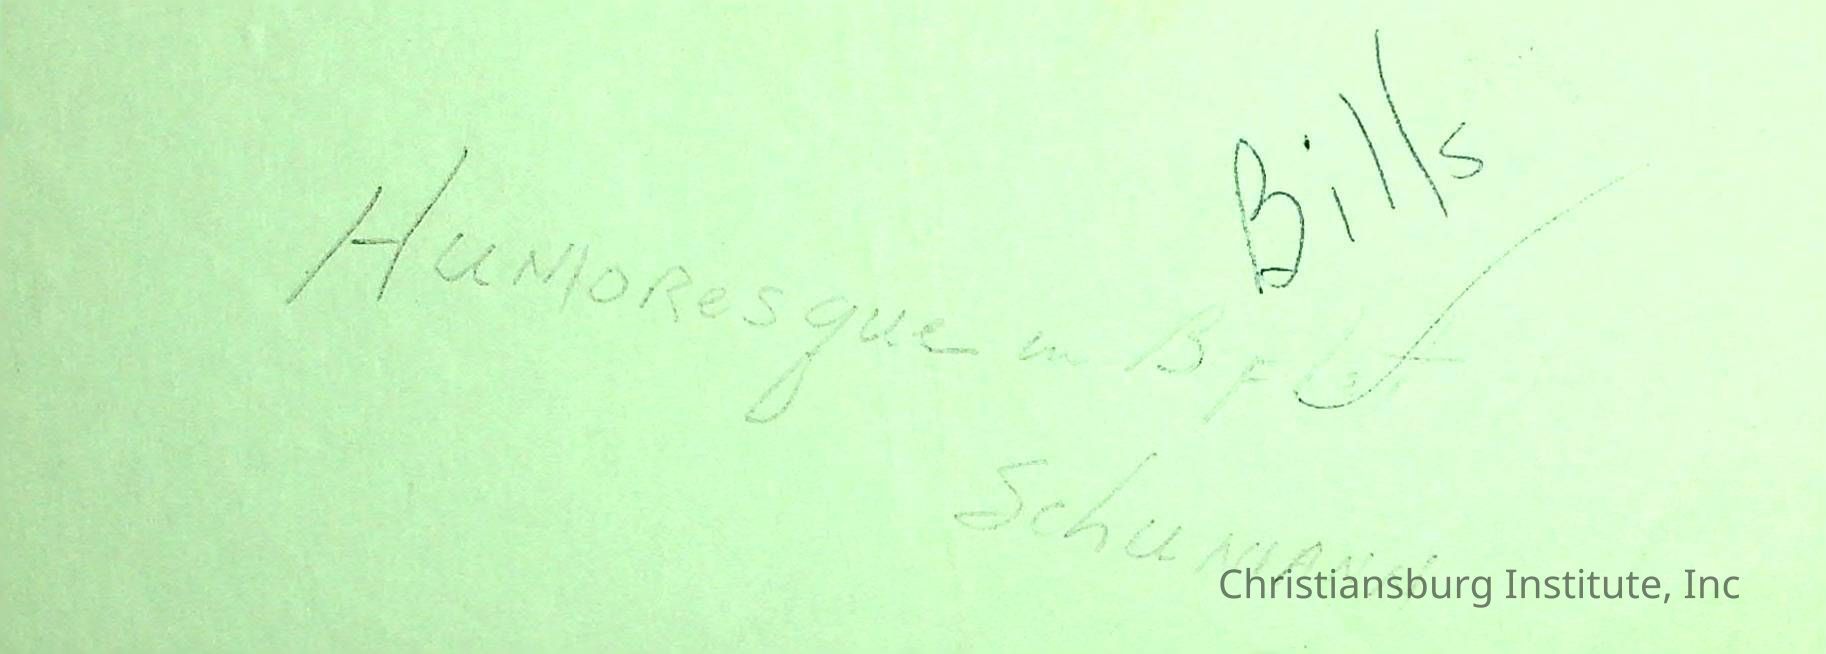 Bills
Humoresque in B flat
Schumann
Christiansburg Institute, Inc